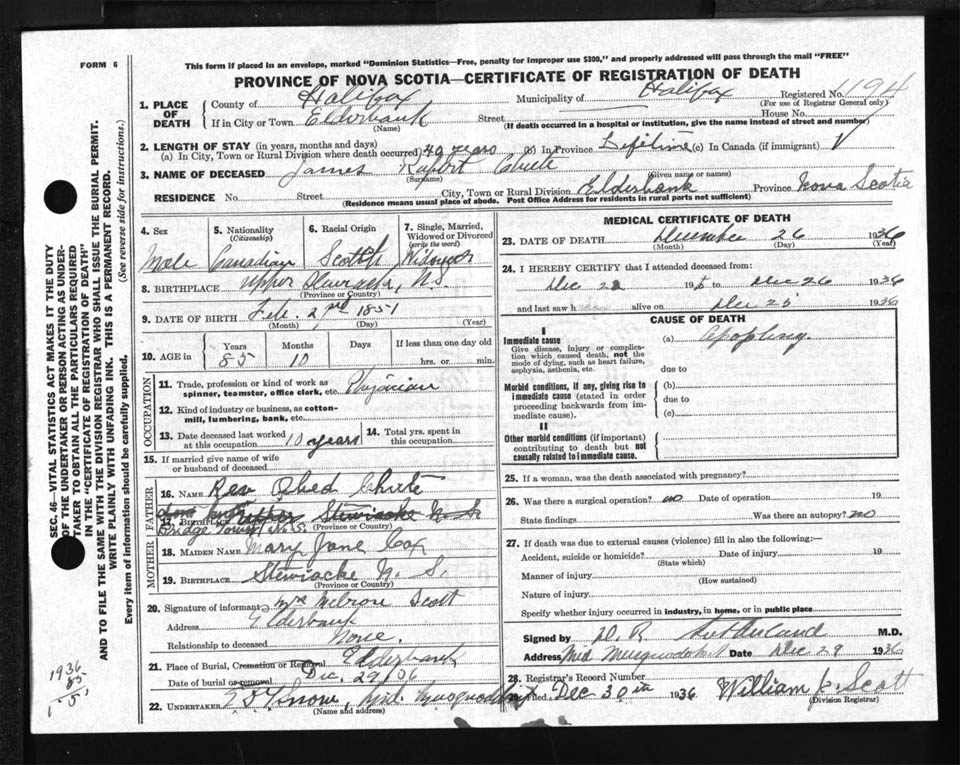 FORM 6
This form if placed in an envelope, marked "Dominion Statistics—Free, penalty for improper use $300," and properly addressed will pass through the mail "FREE"
PROVINCE OF NOVA SCOTIA—CERTIFICATE OF REGISTRATION OF DEATH
SEC. 46—VITAL STATISTICS ACT MAKES IT THE DUTY
OF THE UNDERTAKER OR PERSON ACTING AS UNDER-
TAKER TO OBTAIN ALL THE PARTICULARS REQUIRED
IN THE "CERTIFICATE OF REGISTRATION OF DEATH"
AND TO FILE THE SAME WITH THE DIVISION REGISTRAR WHO SHALL ISSUE THE BURIAL PERMIT.
WRITE PLAINLY WITH UNFADING INK. THIS IS A PERMANENT RECORD.
Every item of information should be carefully supplied. (See reverse side for instructions.)
1. PLACE OF DEATH
County of Halifax Municipality of Halifax Registered No. 1194
(For use of Registrar General only)
If in City or Town Elderbank Street House No.
(Name) (If death occurred in a hospital or institution, give the name instead of street and number)
2. LENGTH OF STAY (in years, months and days)
(a) In City, Town or Rural Division where death occurred 49 years (b) In Province Lifetime (c) In Canada (if immigrant)
3. NAME OF DECEASED James Rupert Chute
(Surname) (Given name or names)
RESIDENCE No. Street City, Town or Rural Division Elderbank Province Nova Scotia
(Residence means usual place of abode. Post Office Address for residents in rural parts not sufficient)
4. Sex 5. Nationality (Citizenship) 6. Racial Origin 7. Single, Married, Widowed or Divorced (write the word)
Male Canadian Scotch Widower
8. BIRTHPLACE Upper Stewiacke, N.S.
(Province or Country)
9. DATE OF BIRTH Feb. 2nd 1851
(Month) (Day) (Year)
10. AGE in Years Months Days If less than one day old
85 10 hrs. or min.
OCCUPATION
11. Trade, profession or kind of work as spinner, teamster, office clerk, etc. Physician
12. Kind of industry or business, as cotton-mill, lumbering, bank, etc.
13. Date deceased last worked at this occupation 10 years 14. Total yrs. spent in this occupation
15. If married give name of wife or husband of deceased
FATHER
16. Name Rev. Obed Chute
17. Birthplace Upper Stewiacke N. S.
Bridge Town N.S. (Province or Country)
MOTHER
18. MAIDEN NAME Mary Jane Cox
19. BIRTHPLACE Stewiacke N. S.
(Province or Country)
20. Signature of informant Mrs Melrose Scott
Address Elderbank
Relationship to deceased None.
21. Place of Burial, Cremation or Removal Elderbank
Date of burial or removal Dec. 29/36
22. UNDERTAKER Snow, Mid. Musquodoboit
(Name and address)
1936
85
MEDICAL CERTIFICATE OF DEATH
23. DATE OF DEATH December 26 1936
(Month) (Day) (Year)
24. I HEREBY CERTIFY that I attended deceased from:
Dec 22 19 to Dec 26 1936
and last saw h alive on Dec 25 1936
CAUSE OF DEATH
I
Immediate cause
Give disease, injury or complication which caused death, not the mode of dying, such as heart failure, asphyxia, asthenia, etc.
(a) Apoplexy.
due to
Morbid conditions, if any, giving rise to immediate cause (stated in order proceeding backwards from immediate cause).
(b)
due to
(c)
II
Other morbid conditions (if important) contributing to death but not causally related to immediate cause.
25. If a woman, was the death associated with pregnancy?
26. Was there a surgical operation? no Date of operation 19
State findings Was there an autopsy? no
27. If death was due to external causes (violence) fill in also the following:—
Accident, suicide or homicide? Date of injury 19
(State which)
Manner of injury
(How sustained)
Nature of injury
Specify whether injury occurred in industry, in home, or in public place
Signed by D. R. Sutherland M.D.
Address Mid Musquodoboit Date Dec 29 1936
28. Registrar's Record Number
Filed Dec 30th 1936 William J. Scott
(Division Registrar)